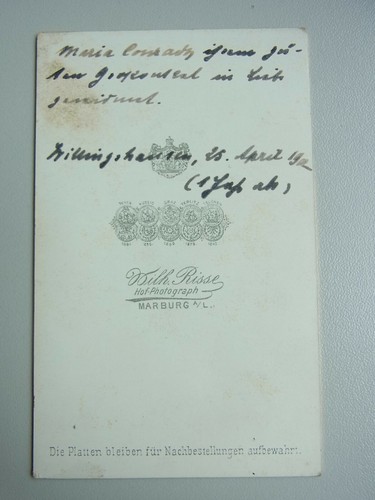 Maria Conrady ihrem gu-
ten Großonkel in Liebe
gewidmet.
Willingshausen, 25. April 1912
(1 Jahr alt)
Wilh. Risse
Hof-Photograph
MARBURG a/L.
Die Platten bleiben für Nachbestellungen aufbewahrt.